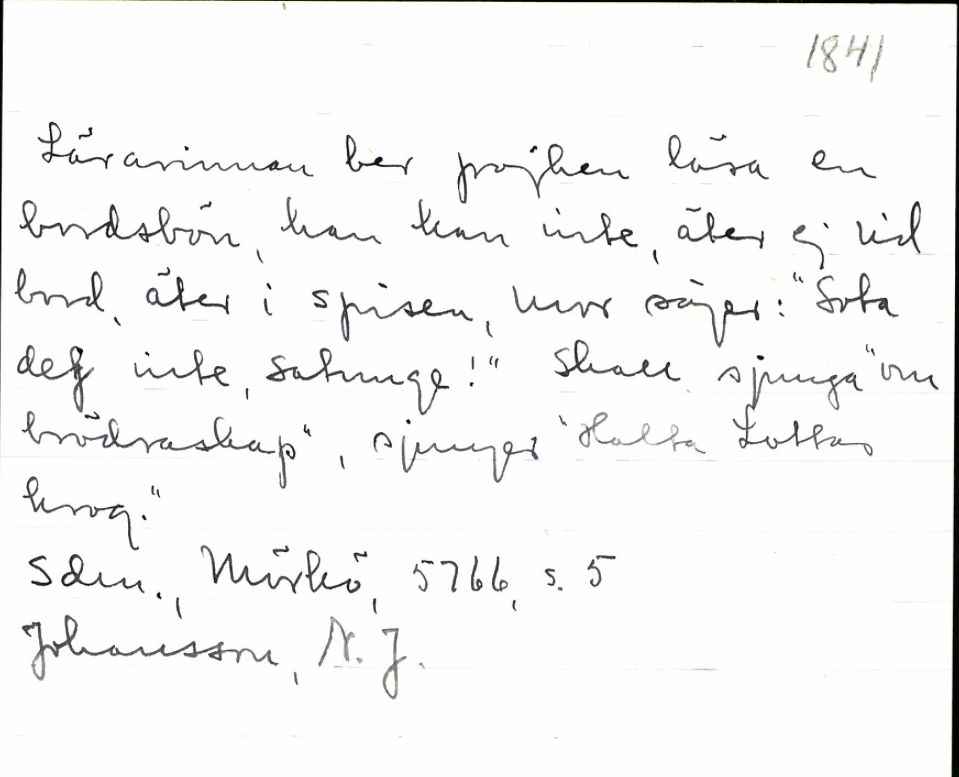 1841
Lärarinnan ber pojken läsa en
bordsbön, han kan inte, äter ej vid
bord, äter i spisen, mor säger: "Sota
dej inte, satunge!" Skall sjunga "om
brödraskap", sjunger "Halta Lottas
krog."
Sdm., Mörkö, 5766, s. 5
Johansson, N. J.